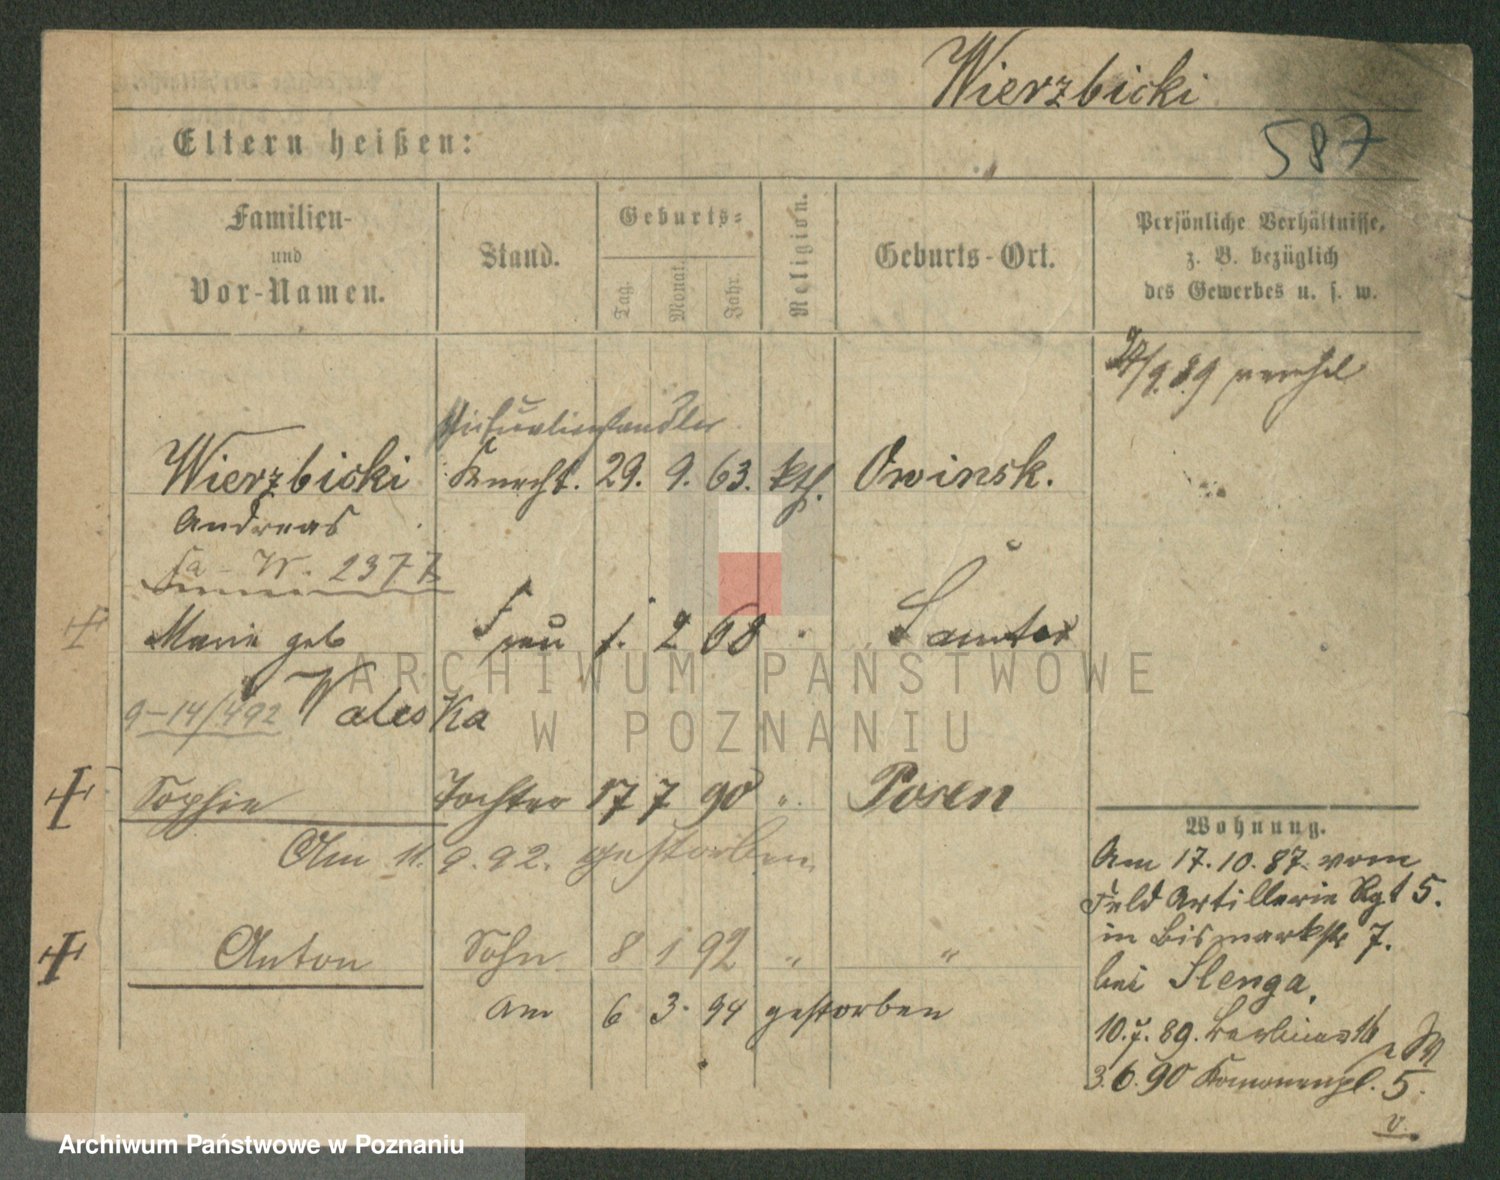 Wierzbicki
587
Eltern heißen:
Familien-
und
Vor-Namen.
Stand.
Geburts-
Tag.
Monat.
Jahr.
Religion.
Geburts-Ort.
Persönliche Verhältnisse,
z. B. bezüglich
des Gewerbes u. s. w.
/9.89
Victualienhändler
Wierzbicki Knecht. 29. 9. 63. kth. Owinsk.
Andreas
W. 2377
Marie geb Frau 1. 2 68 " Samter
9-14/492 Valeska
Sophie Tochter 17 7 90 " Posen
Am 11. 9. 92. gestorben
Anton Sohn 8 1 92 " "
am 6 3. 94 gestorben
Wohnung.
Am 17.10.87 vom
Feld Artillerie Rgt 5.
in Bismarkstr 7.
bei Slenga.
10.7.89. Berlinerst 16
3.6.90 5.
v.
ARCHIWUM PAŃSTWOWE
W POZNANIU
Archiwum Państwowe w Poznaniu